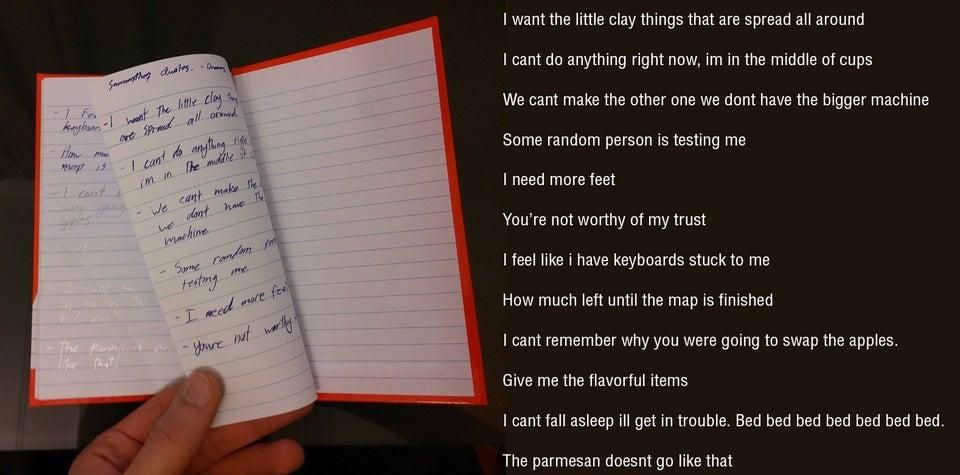 Quotes.
- I want the little clay
are spread all around
- I cant do anything right
im in the middle of
- We cant make the
we dont have the
machine.
- Some random
testing me.
- I need more feet
- Youre not worthy
- I
keyboar
- How
map is
- I cant
were going
apples.
- The
like that.
I want the little clay things that are spread all around
I cant do anything right now, im in the middle of cups
We cant make the other one we dont have the bigger machine
Some random person is testing me
I need more feet
You're not worthy of my trust
I feel like i have keyboards stuck to me
How much left until the map is finished
I cant remember why you were going to swap the apples.
Give me the flavorful items
I cant fall asleep ill get in trouble. Bed bed bed bed bed bed bed.
The parmesan doesnt go like that